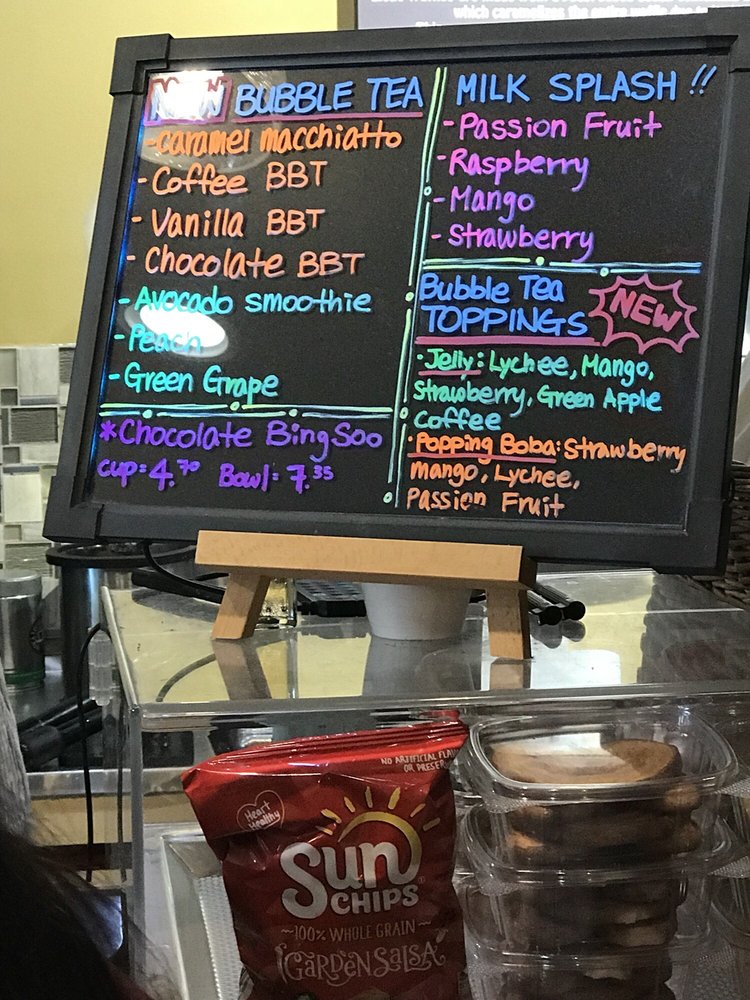 which caramelizes the entire waffle due to
NEW BUBBLE TEA
-caramel macchiatto
-Coffee BBT
-Vanilla BBT
-Chocolate BBT
-Avocado smoothie
-Peach
-Green Grape
*Chocolate BingSoo
cup=4.70 Bowl=7.35
MILK SPLASH!!
-Passion Fruit
-Raspberry
-Mango
-Strawberry
Bubble Tea
TOPPINGS NEW
·Jelly: Lychee, Mango,
Strawberry, Green Apple
Coffee
·Popping Boba: Strawberry
mango, Lychee,
Passion Fruit
NO ARTIFICIAL
OR
Heart
Healthy
Sun
CHIPS
~100% WHOLE GRAIN~
GARDEN SALSA